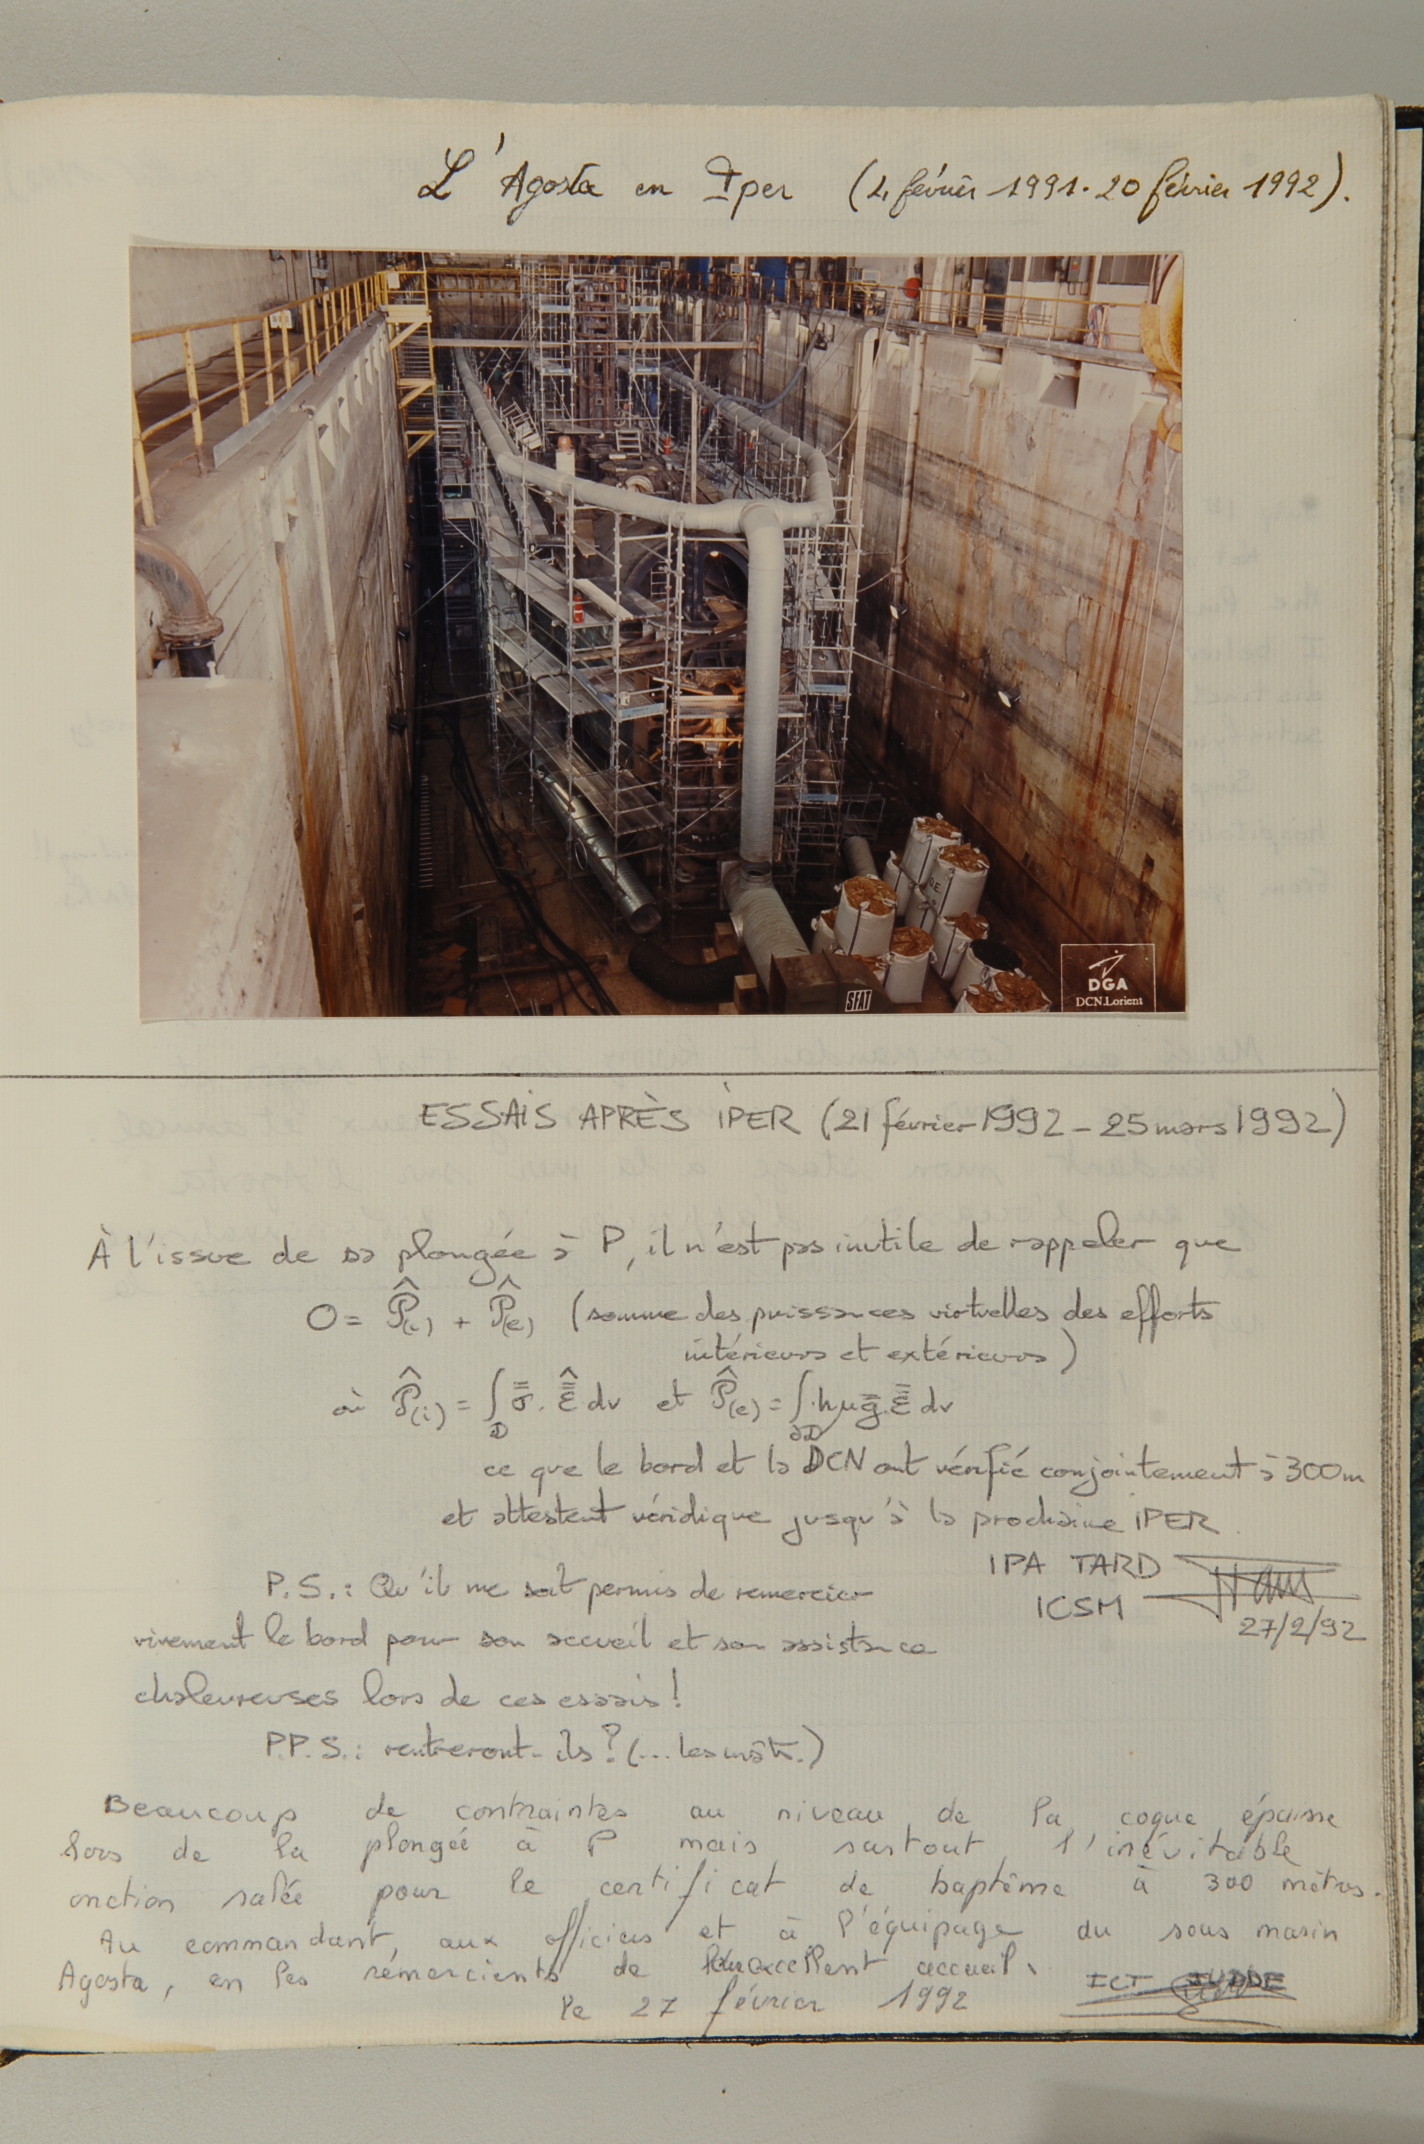 L'Agosta en Iper (4 février 1991 - 20 février 1992).
SEAT
DGA
DCN Lorient
ESSAIS APRÈS IPER (21 février 1992 - 25 mars 1992)
À l'issue de sa plongée à P, il n'est pas inutile de rappeler que
0 = P̂(i) + P̂(e) (somme des puissances virtuelles des efforts
intérieurs et extérieurs)
où P̂(i) = ∫ σ . ε̂ dv et P̂(e) = ∫ hμg . ε dv
D ∂D
ce que le bord et la DCN ont vérifié conjointement à 300m
et attestent véridique jusqu'à la prochaine IPER.
IPA TARD
ICSM
27/2/92
P.S.: Qu'il me soit permis de remercier
vivement le bord pour son accueil et son assistance
chaleureuses lors de ces essais !
P.P.S.: rentreront-ils ? (... les mâts.)
Beaucoup de contraintes au niveau de la coque épaisse
lors de la plongée à P mais surtout l'inévitable
onction salée pour le certificat de baptême à 300 mètres.
Au commandant, aux officiers et à l'équipage du sous marin
Agosta, en les remerciants de leur excellent accueil.
le 27 février 1992
ICT JUDDE